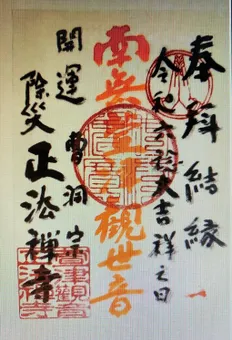 奉拜結縁
令和六龍大吉祥之日
南無聖觀世音
曹洞宗
開運
除災
正法禅寺